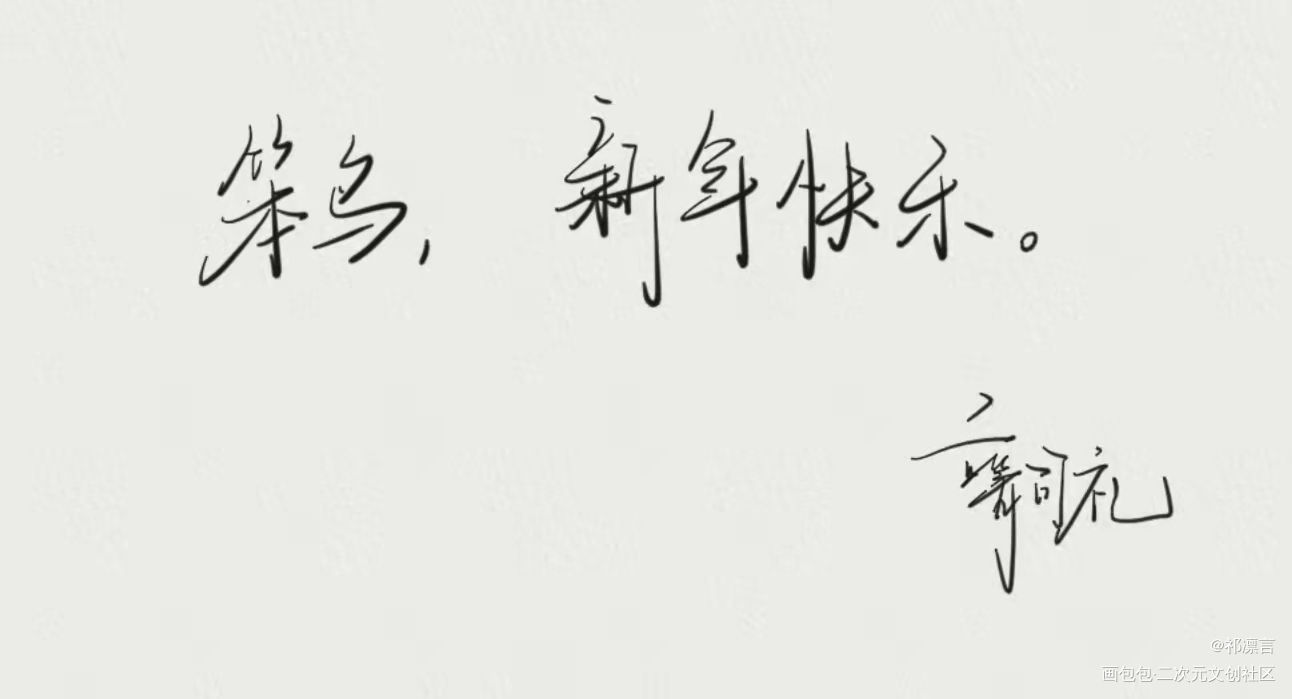 笨鸟，新年快乐。
辜司礼
@祁凛言
画包包·二次元文创社区